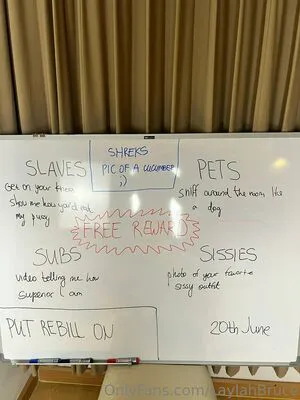 SHREKS
PIC OF A CUCUMBER
;)
SLAVES
Get on your knees
Show me how you'd eat
my pussy
PETS
Sniff around the room like
a dog
FREE REWARD
SUBS
video telling me how
superior I am
SISSIES
photo of your favorite
sissy outfit
PUT REBILL ON
20th June